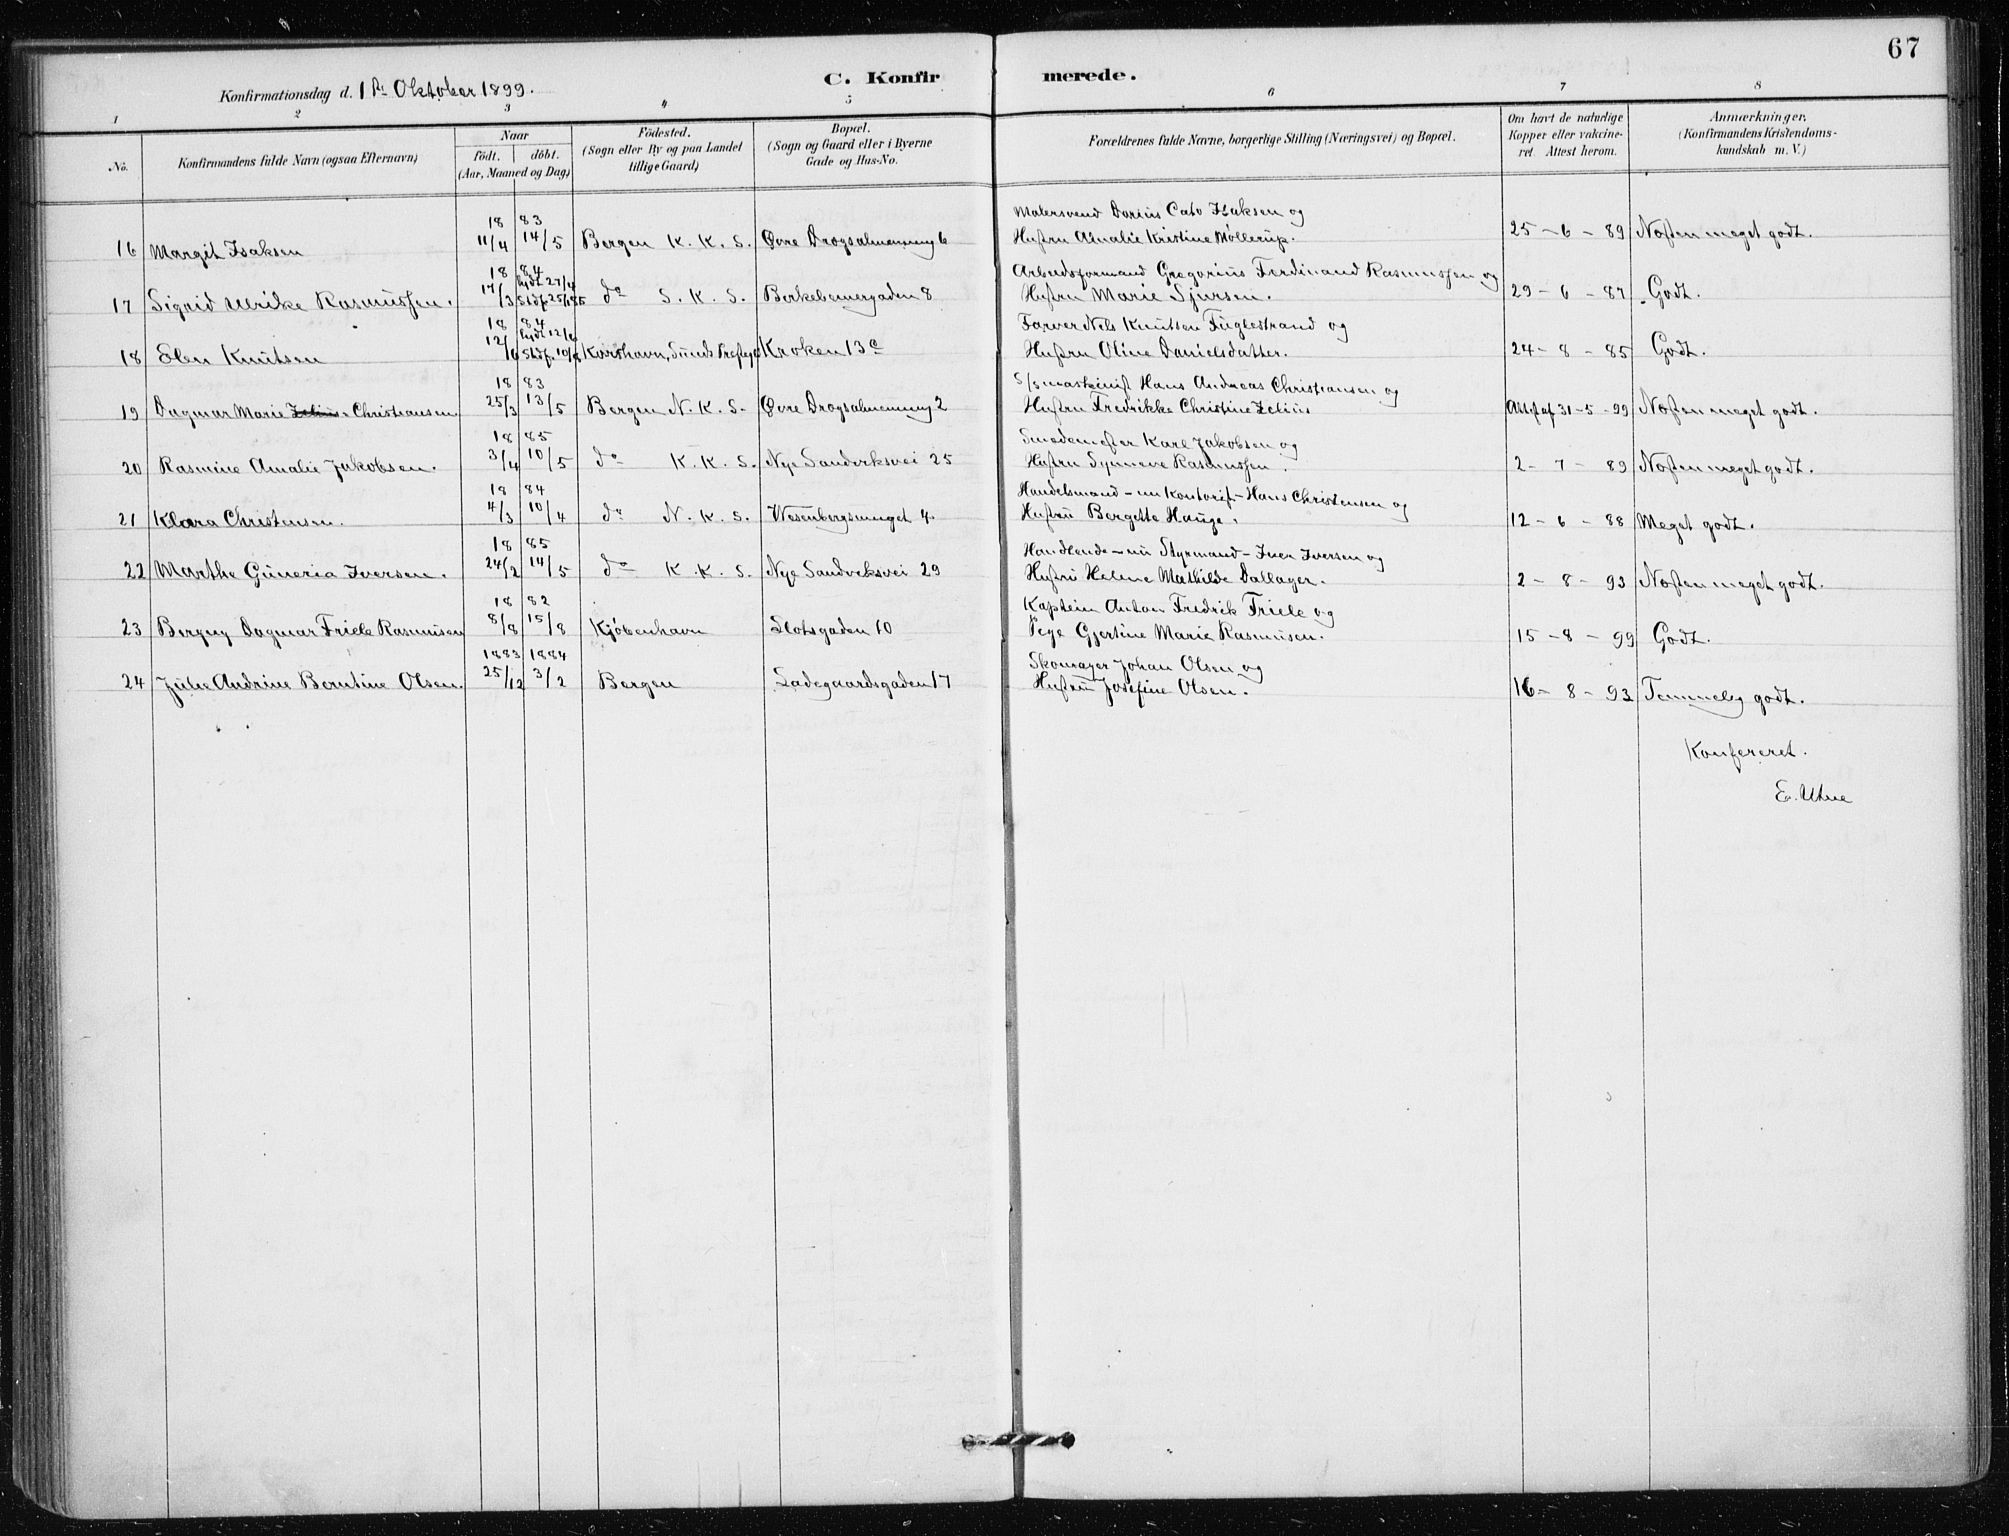 67
C. Konfirmerede.
Konfirmationsdag d. 1ste Oktober 1899.
1 2 3 4 5 6 7 8
No. Konfirmandens fulde Navn (ogsaa Efternavn) Naar født. døbt. (Aar, Maaned og Dag) Fødested. (Sogn eller By og paa Landet tillige Gaard) Bopæl. (Sogn og Gaard eller i Byerne Gade og Hus-No. Forældrenes fulde Navne, borgerlige Stilling (Næringsvei) og Bopæl. Om havt de naturlige Kopper eller vakcineret. Attest herom. Anmærkninger. (Konfirmandens Kristendomskundskab m. V.)
18 83 Malersvend Darius Cato Isaksen og
16 Margit Isaksen 11/4 14/5 Bergen K. K. S. Øvre Dragsalmenning 6 Hustru Amalie Kristine Møllerup. 25 - 6 - 89 Næsten meget godt.
18 84 Arbeidsformand Gregorius Ferdinand Rasmussen og
17 Sigrid Ulrike Rasmussen. 17/3 hjdt 27/4 Stdf. 25/5 85 do S. K. S. Berkebeinergaden 8 Hustru Marie Sjursen. 29 - 6 - 87 Godt.
18 84 Farver Nels Knutsen Fuglestrand og
18 Elen Knutsen 12/6 hjdt 12/6 Stdf. 10/8 Korshavn, Sunds Prestegj. Kroken 13c Hustru Oline Danielsdatter. 24 - 8 - 85 Godt.
18 83 S/s maskinist Hans Andreas Christiansen og
19 Dagmar Marie Zelius Christiansen 25/3 13/5 Bergen N. K. S. Øvre Dragsalmenning 2 Hustru Fredrikke Christine Zelius Attest af 31 - 5 - 99 Næsten meget godt.
18 85 Smedemester Karl Jakobsen og
20 Rasmine Amalie Jakobsen. 3/4 10/5 do K. K. S. Nye Sandviksvei 25 Hustru Synneve Rasmussen. 2 - 7 - 89 Næsten meget godt.
18 84 Handelsmand - nu Kontorist - Hans Christensen og
21 Klara Christensen. 4/3 10/4 do N. K. S. Wesenbergsmuget 4. Hustru Bergette Hauge. 12 - 6 - 88 Meget godt.
18 85 Handlende - nu Styrmand - Iver Iversen og
22 Marthe Guneria Iversen. 24/2 14/5 do K. K. S. Nye Sandviksvei 29 Hustru Helene Mathilde Dallager. 2 - 8 - 93 Næsten meget godt.
18 82 Kaptein Anton Fredrik Friele og
23 Bergny Dagmar Friele Rasmusen 8/8 15/8 Kjøbenhavn Slotsgaden 10 Pige Gjertine Marie Rasmusen. 15 - 8 - 99 Godt.
1883 1884 Skomager Johan Olsen og
24 Julie Andrine Berntine Olsen. 25/12 3/2 Bergen Ladegaardsgaden 17 Hustru Josefine Olsen. 16 - 8 - 93 Temmelig godt.
Konfereret.
E. Utne